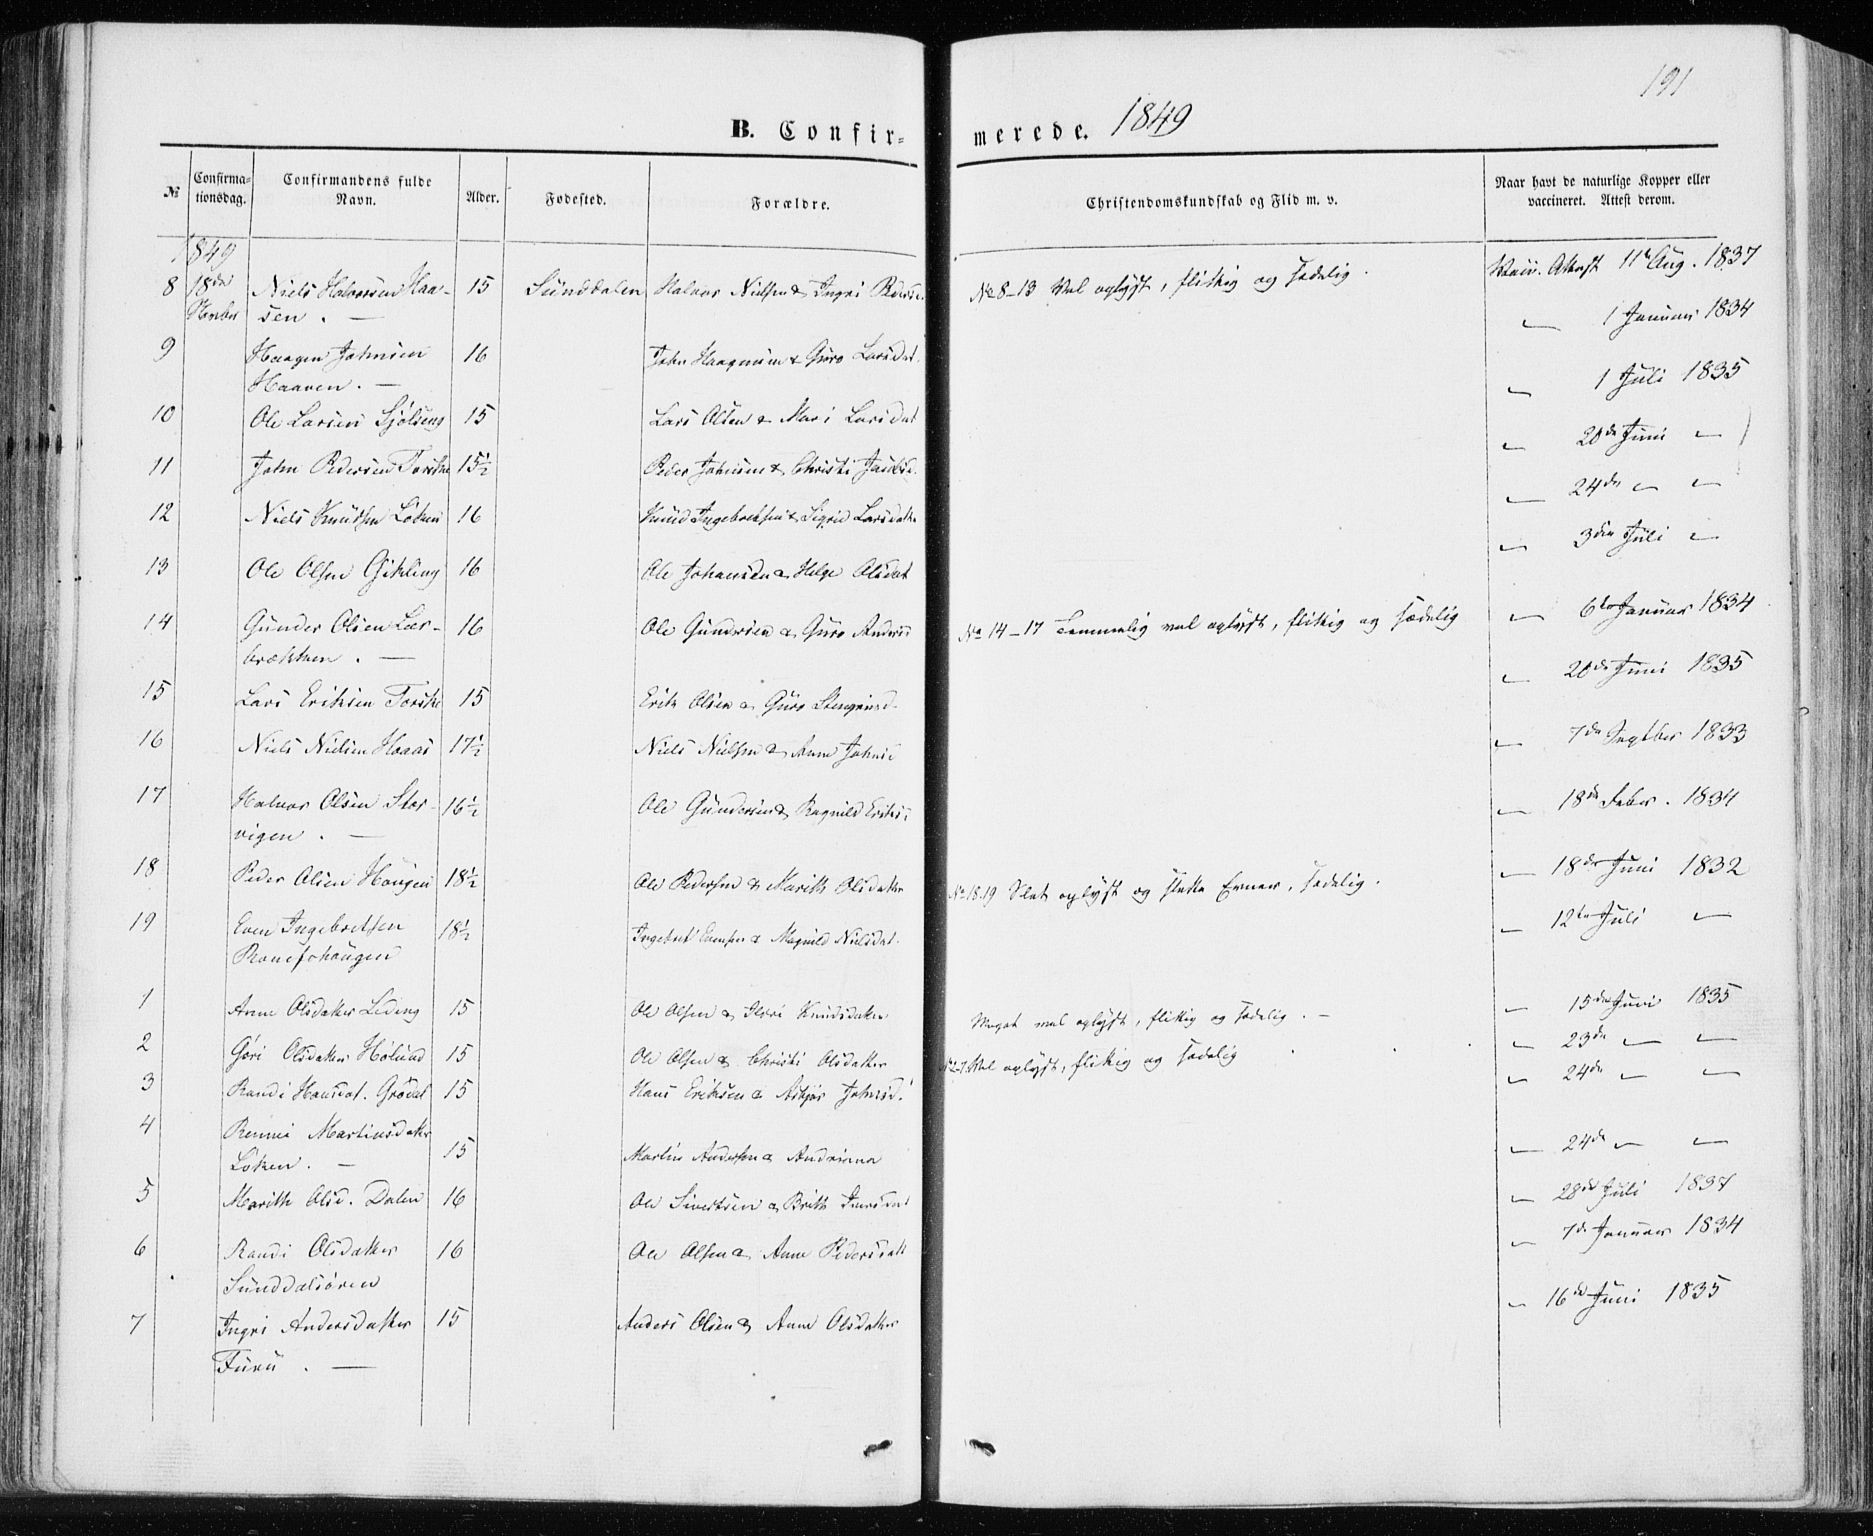 191
B. Confir-
merede. 1849
№
Confirma-
tionsdag.
Confirmandens fulde
Navn.
Alder.
Fødested.
Forældre.
Christendomskundskab og Flid m. v.
Naar havt de naturlige Kopper eller
vaccineret. Attest derom.
1849
8 18de Niels Halvorsen Haa- 15 Sunddalen Halvor Nielsen & Ingri Pedersd. No 8-13 Vel oplyst, flittig og sædelig. Vacc. Attest 11te Aug. 1837
sen. —
9 Haagen Johnsen 16 John Haagensen & Guro Larsdat. 1 Januar 1834
Haaven. —
10 Ole Larsen Sjølseng 15 Lars Olsen & Mari Larsdat 1 Juli 1835
11 John Pedersen Torske 15½ Peder Johnsen & Christi Jacobsd. 20de Juni
12 Niels Knudsen Løken 16 Knud Ingebretsen & Sigrid Larsdatter 24de
13 Ole Olsen Gikling 16 Ole Johansen & Helge Olsdat 3die Juli
14 Gunder Olsen Lær- 16 Ole Gundersen & Guro Andersd No 14-17 Temmelig vel oplyst, flittig og sædelig 6te Januar 1834
brækken. —
15 Lars Eriksen Torske 15 Erik Olsen & Guro 20de Juni 1835
16 Niels Nielsen Haaas 17½ Niels Nielsen & Anne Johnsd 7de Septber 1833
17 Halvor Olsen Stor- 16½ Ole Gundersen & Ragnild Eriksd 18de Febr. 1834
vigen. —
18 Peder Olsen Hougen 18½ Ole Pedersen & Marith Olsdatter No 18.19 Slet oplyst og slette Evner, sædelig. 18de Juni 1832
19 Even Ingebretsen 18½ Ingebret Evensen & Magnild Nielsdat. 12te Juli
1 Anne Olsdatter Leding 15 Ole Olsen & Knudsdatter Meget vel oplyst, flittig og sædelig. — 15de Juni 1835
2 Gøri Olsdatter Holund 15 Ole Olsen & Christi Olsdatter No 2-7 Vel oplyst, flittig og sædelig 23de
3 Randi Hansdat. Grødal 15 Hans Eriksen & Johnsd. 24de
4 Martinsdatter
Løken. — 15 Martin Andersen & Andrianna 24de
5 Marith Olsd. Dalen 16 Ole Sivertsen & Brith 28de Juli 1837
6 Randi Olsdatter 16 Ole Olsen & Anne Pedersdatt 7de Januar 1834
Sunddalsøren
7 Ingri Andersdatter 15 Anders Olsen & Anne Olsdatter 16de Juni 1835
Furu. —